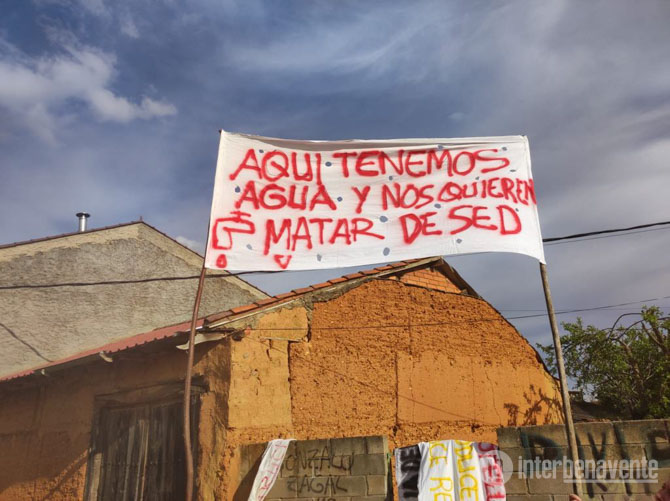 AQUI TENEMOS
AGUA Y NOS QUIEREN
MATAR DE SED
interbenavente